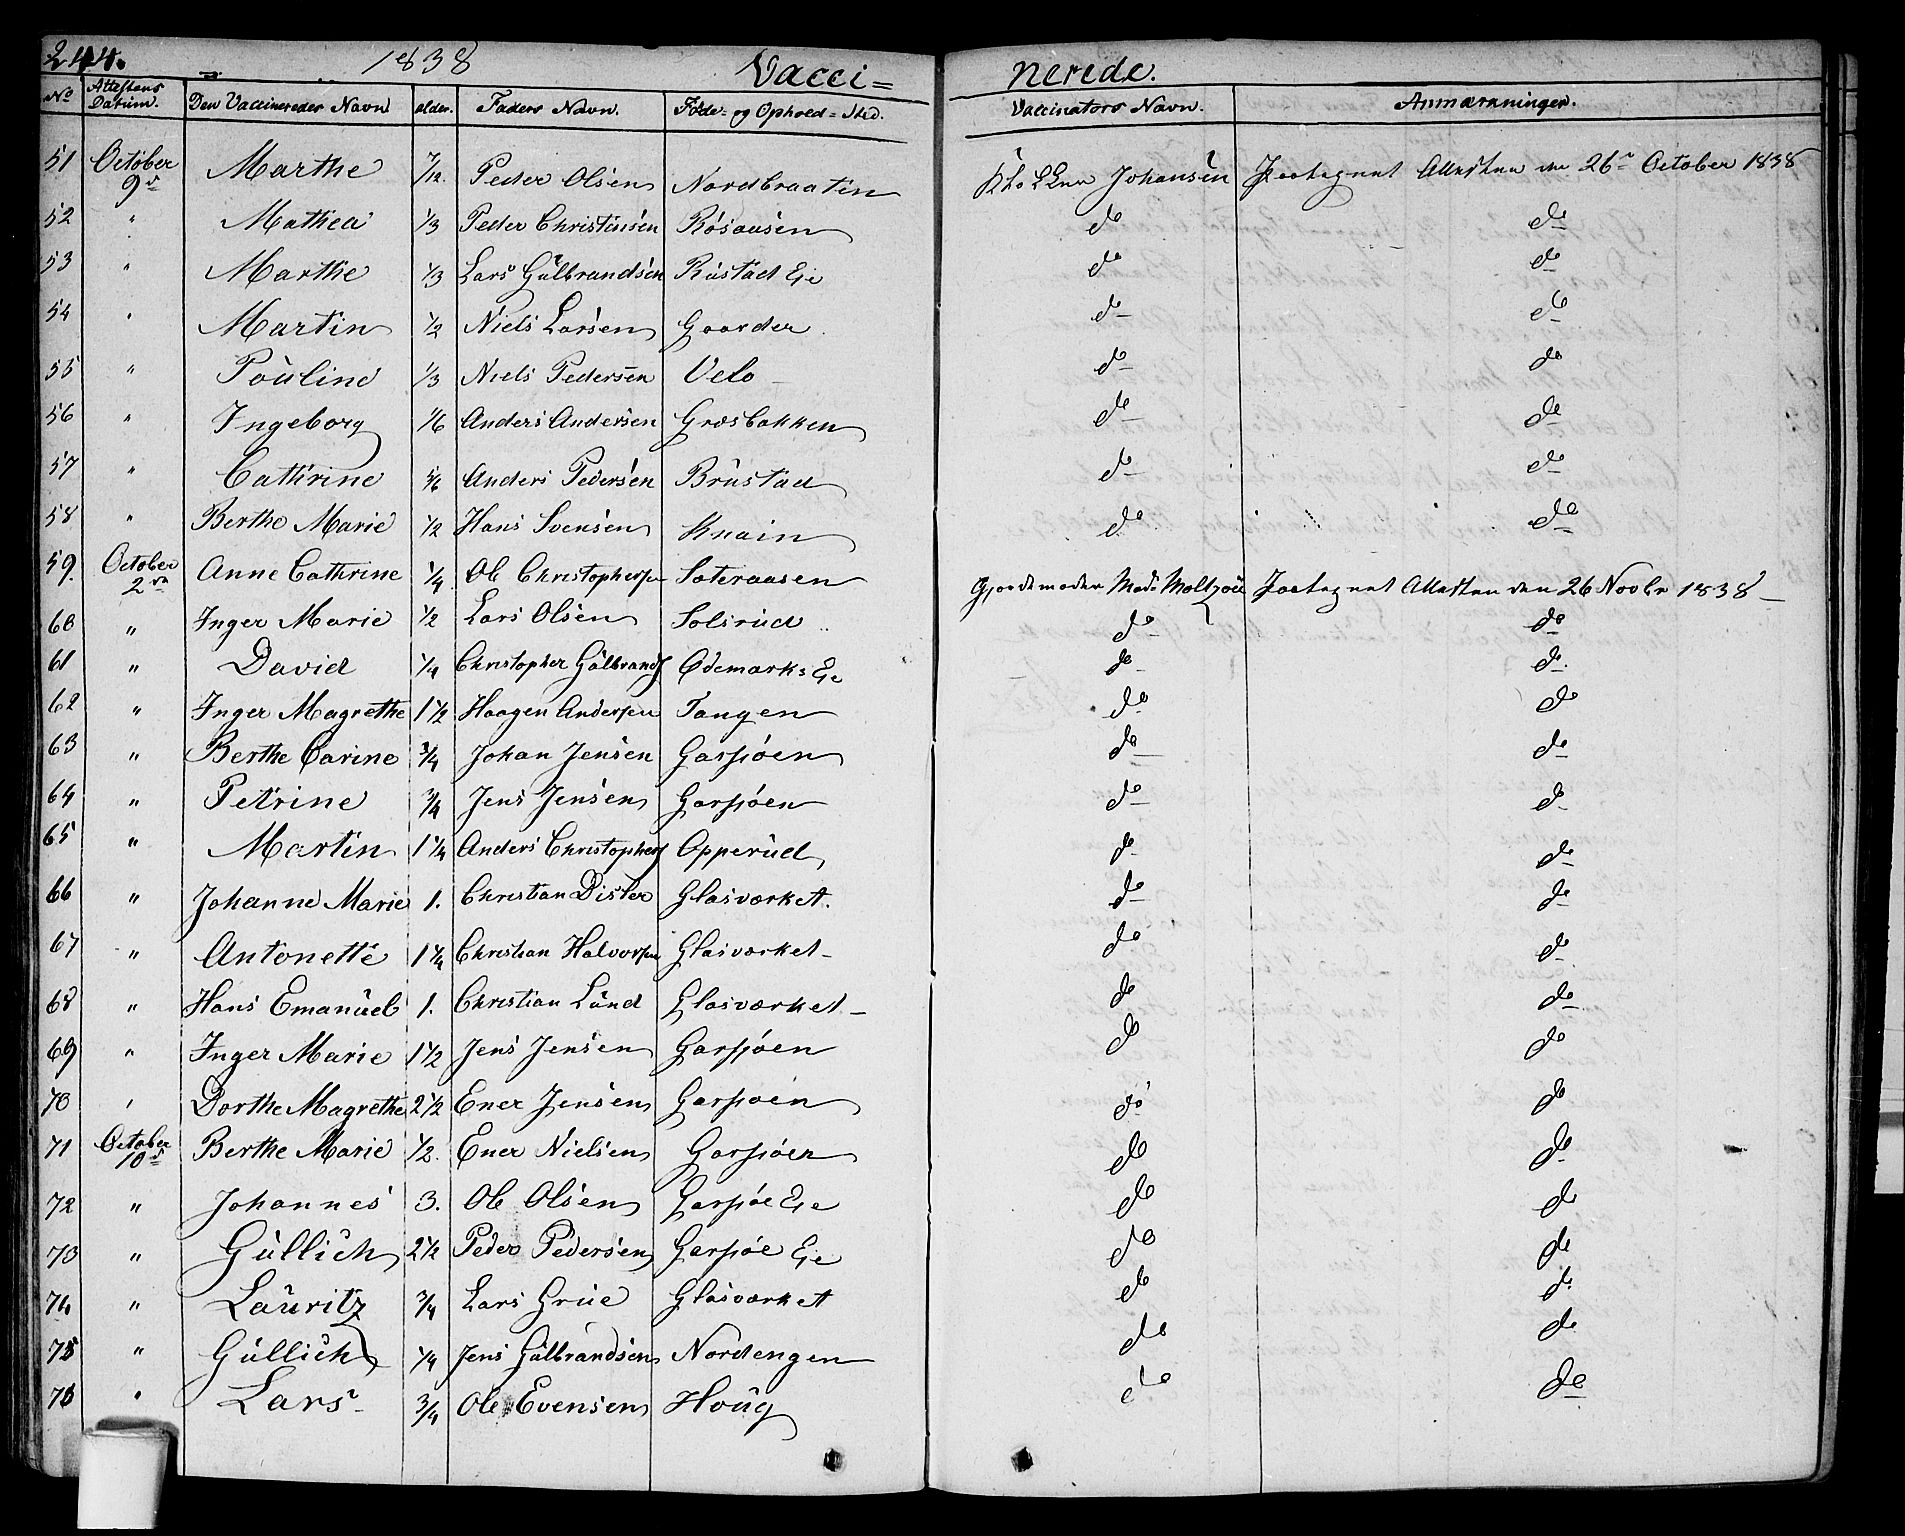 244. 1838 Vacci= nerede.
No Attestens Datum. Den Vaccineredes Navn alder. Faders Navn. Föde- og Ophold=Sted. Vaccinators Navn. Anmærkninger.
51 October 9de Marthe 7/12. Peder Olsen Nordbraaten Johansen Attesten den 26de October 1838
52 " Mathea 1/3 Peder Christinsen Rösaasen do do
53 " Marthe 1/3 Lars Gulbrandsen Rustad Eje do do
54 " Martin 1/2 Niels Larsen Gaarder do do
55 " Pouline 1/3 Niels Pedersen Velo do do
56 " Ingeborg 1/6 Anders Andersen Græsbakken do do
57 " Cathrine 5/6 Anders Pedersen Brustad do do
58 " Berthe Marie 1/2 Hans Svensen Knain do do
59. October 2den Anne Cathrine 1/4 Ole Christophersen Sæteraasen Gjordemoder Mad. Moltzou Attesten den 26 Novbr 1838
60 " Inger Marie 1/2 Lars Olsen Solsrud do do
61 " David 1/4 Christopher Gulbrands Ödemarks Eje do do
62 " Inger Magrethe 1 1/2 Haagen Andersen Tangen do do
63 " Berthe Carine 3/4 Johan Jensen Garsjöen do do
64 " Petrine 3/4 Jens Jensen Garsjöen do do
65 " Martin 1 1/4 Anders Christophers Opperud do do
66 " Johanne Marie 1. Christian Disler Glasværket. do do
67 " Antonette 1 1/4 Christian Halvorsen Glasværket do do
68 " Hans Emanuel 1. Christian Lund Glasværket do do
69 " Inger Marie 1 1/2 Jens Jensen Garsjöen do do
70 " Dorthe Magrethe 2 1/2 Ener Jensen Garsjöen do do
71 October 10de Berthe Marie 1/2. Ener Nielsen Garsjöen do do
72 " Johannes 3. Ole Olsen Garsjöe Eje do do
73 " Gullich 2 1/2 Peder Pedersen Garsjöe Eje do do
74 " Lauritz 3/4 Lars Grue Glasværket do do
75 " Gullich 1/4 Jens Gulbrandsen Nordengen do do
76 " Lars 3/4 Ole Evensen Houg do do